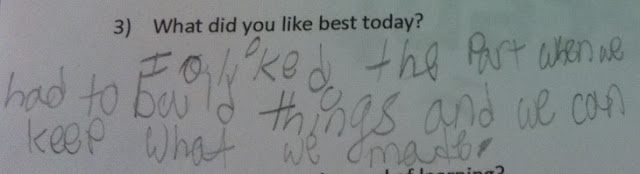 3) What did you like best today?
I liked the Part when we
had to build things and we can
keep what we made.
learning?